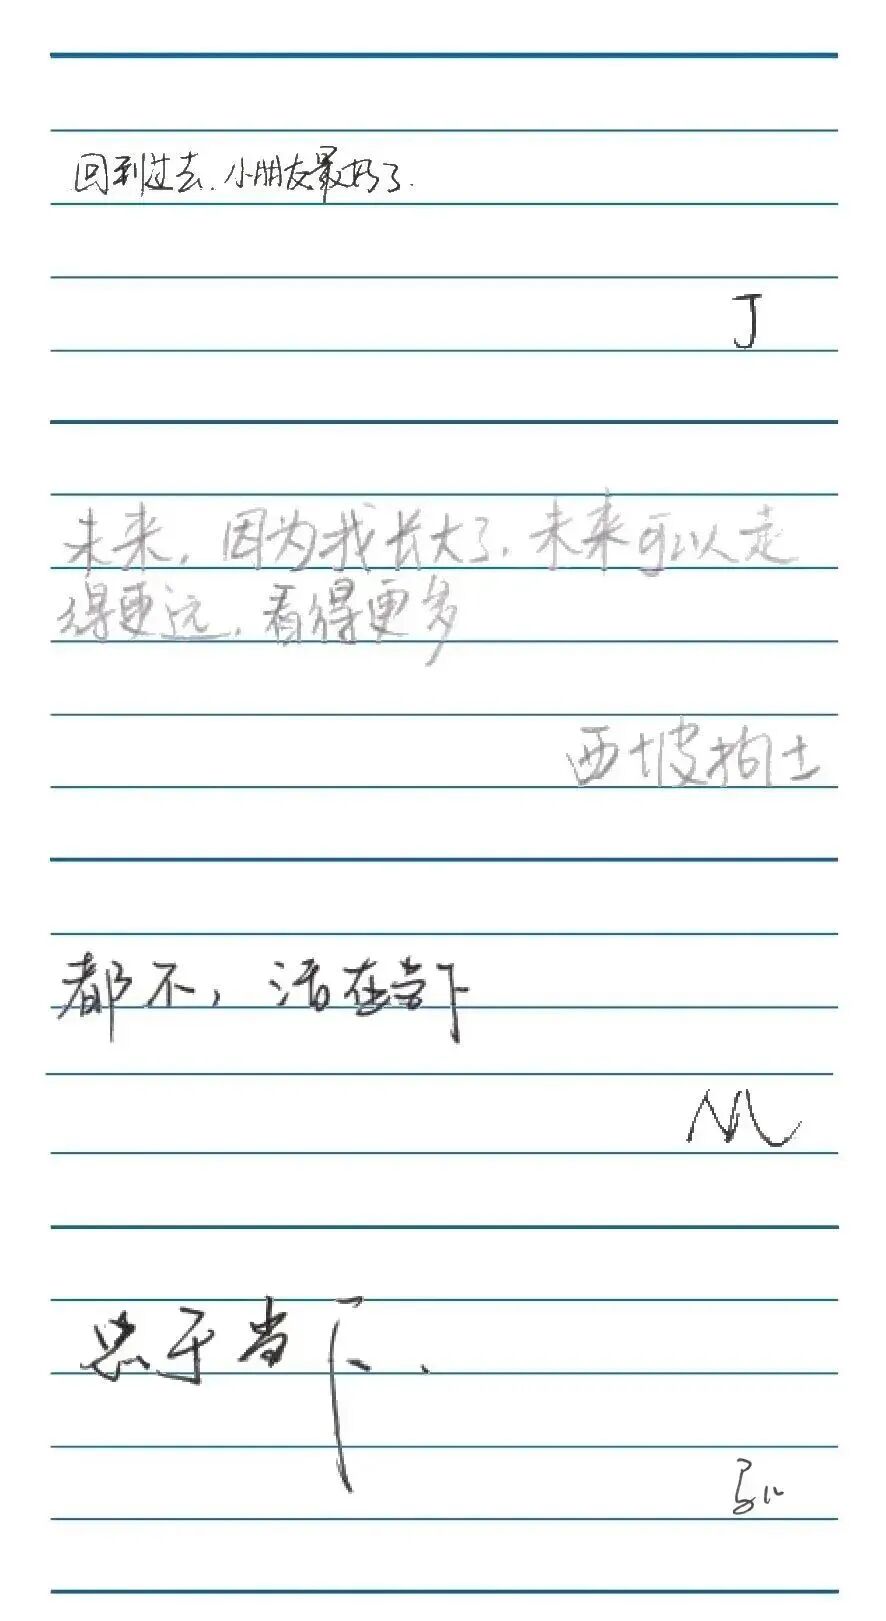 回到过去.小朋友最好了.
J
未来,因为我长大了,未来可以走
得更远,看得更多
西坡拘士
都不,活在当下
M
忠于当下.